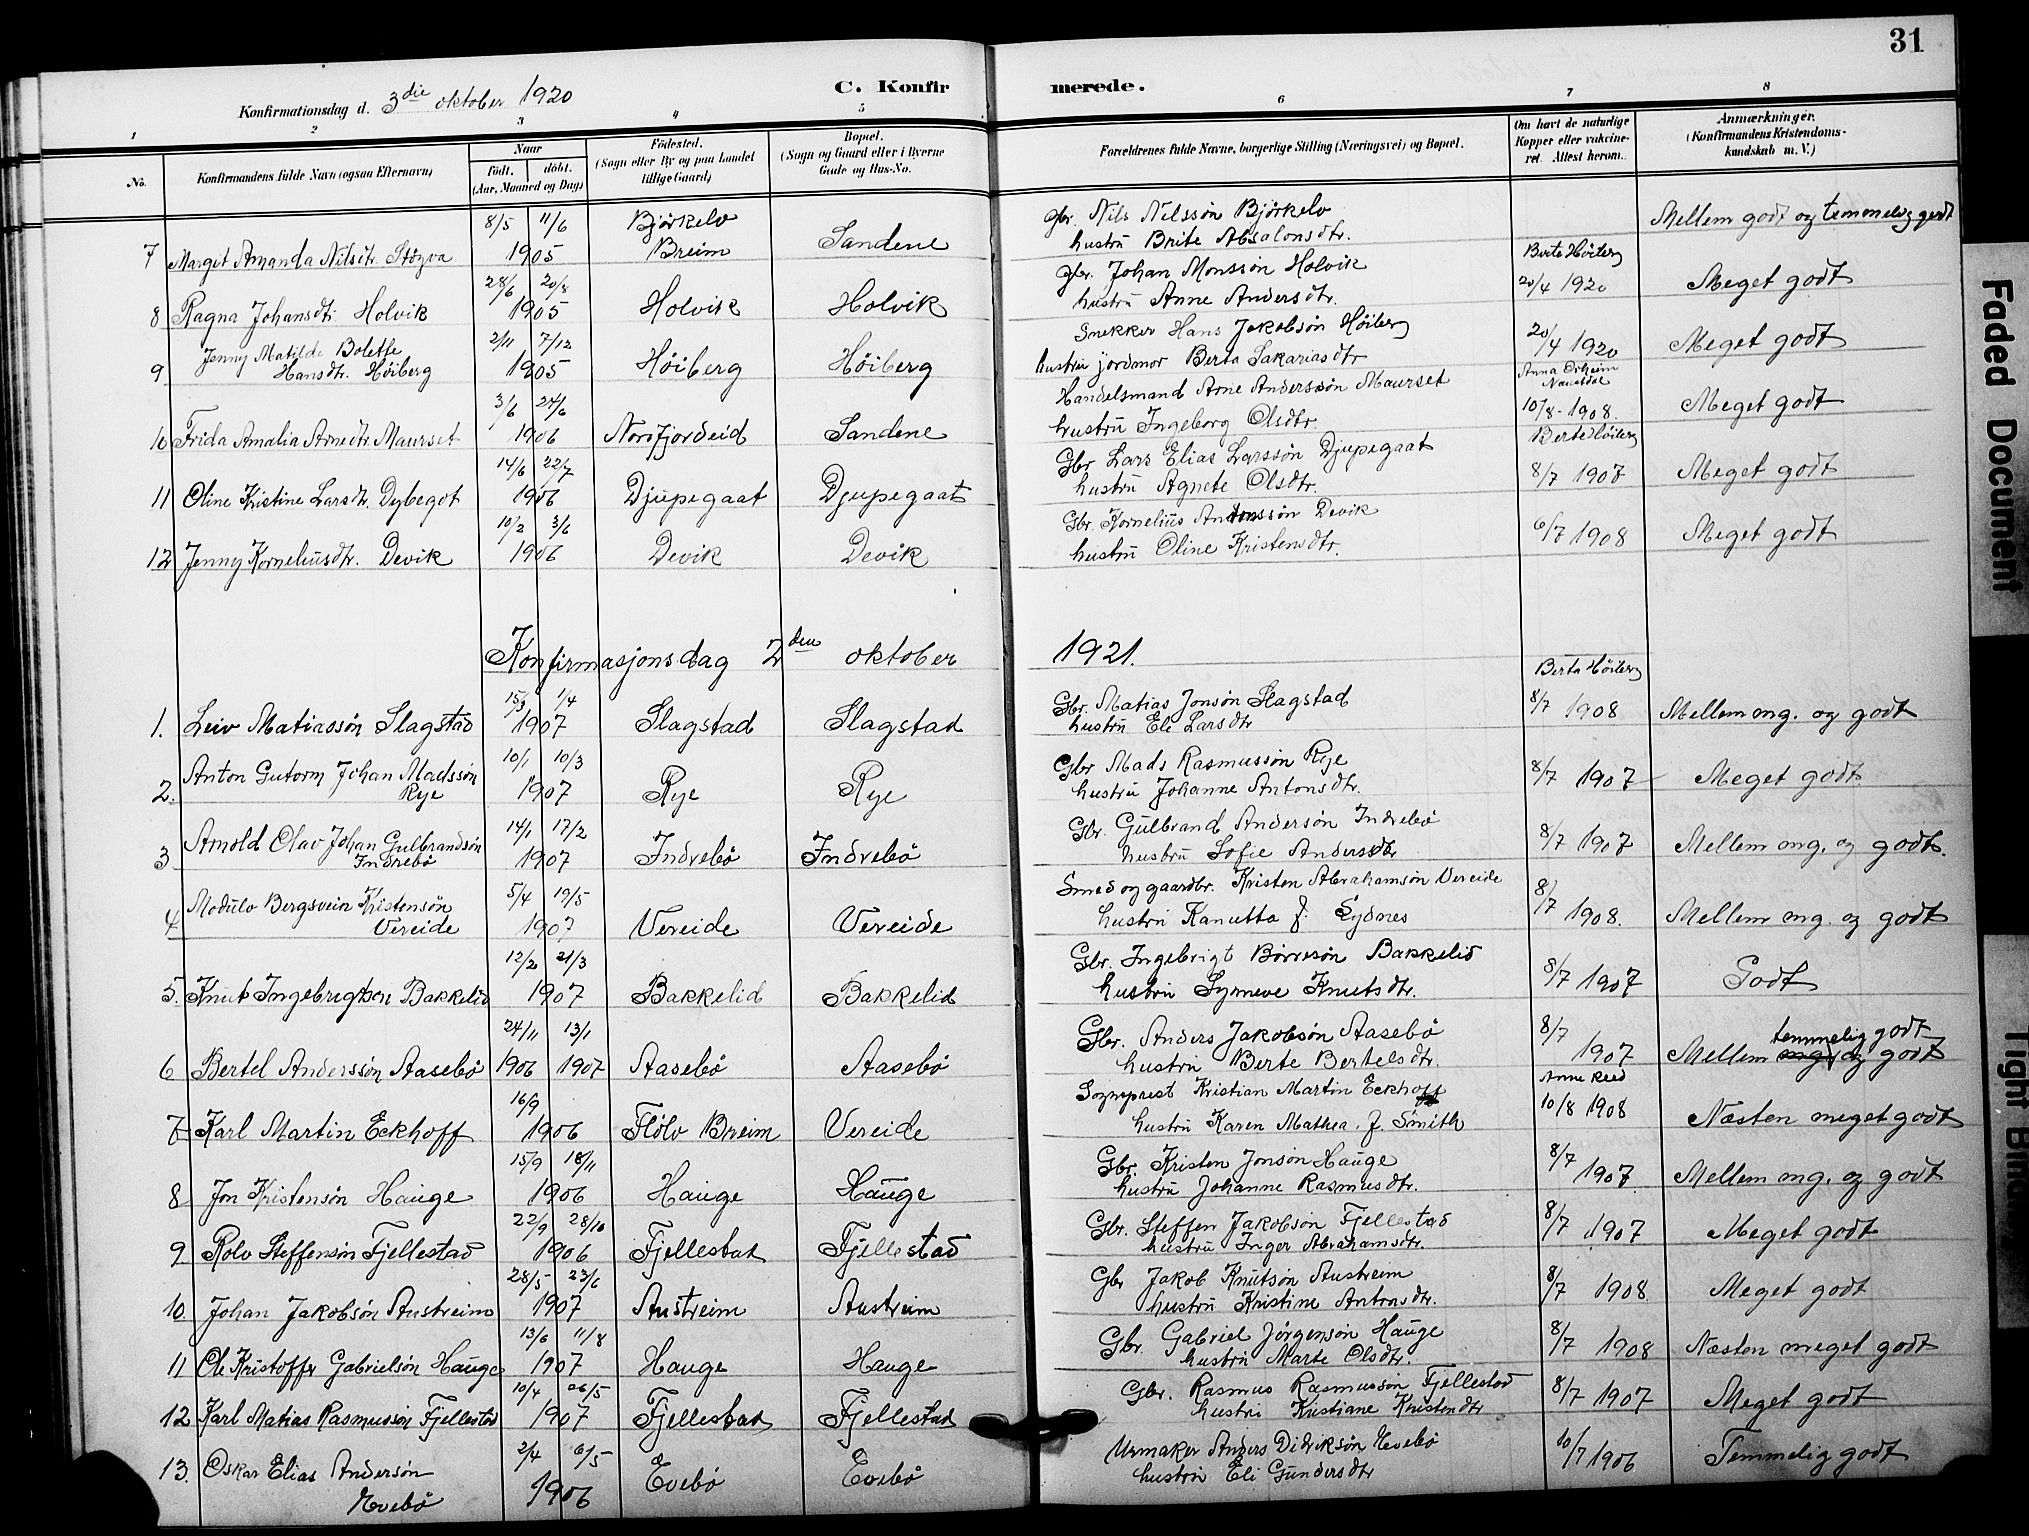 31
Konfirmationsdag d. 3die oktober 1920
C. Konfir merede.
1 2 3 4 5 6 7 8
No.
Konfirmandens fulde Navn (ogsaa Efternavn)
Naar
Født. døbt.
(Aar, Maaned og Dag)
Fødested.
(Sogn eller By og paa Landet
tillige Gaard)
Bopæl.
(Sogn og Gaard eller i Byerne
Gade og Hus-No.
Forældrenes fulde Navne, borgerlige Stilling (Næringsvei) og Bopæl.
Om havt de naturlige
Kopper eller vakcine-
ret. Attest herom.
Anmærkninger.
(Konfirmandens Kristendoms-
kundskab m. V.)
7 Margit Amanda Nilsdtr. 8/5 11/6 1905 Bjørkelo Breim Sandene
Gbr. Nils Nilssøn Bjørkelo
hustru Brite Absalonsdtr.
Mellem godt og temmelig godt
8 Ragna Johansdtr. Holvik 28/6 20/8 1905 Holvik Holvik
Gbr. Johan Monssøn Holvik
hustru Anne Andersdtr.
Berte Høiberg
20/4 1920 Meget godt
9 Jenny Matilde Bolette
Hansdtr. Høiberg 2/11 7/12 1905 Høiberg Høiberg
Snekker Hans Jakobsøn Høiberg
hustru jordmor Berta Sakariasdtr
20/4 1920 Meget godt
10 Frida Amalia Arnedtr Maurset 3/6 24/6 1906 Nordfjordeid Sandene
Handelsmand Arne Anderssøn Maurset
hustru Ingeborg Olsdtr.
Anna Orheim
Naustdal
10/8 - 1908. Meget godt
11 Oline Kristine Larsdtr. Dybegot 14/6 22/7 1906 Djupegaat Djupegaat
Gbr Lars Elias Larssøn Djupegaat
hustru Agnete Olsdtr.
Berte Høiberg
8/7 1907 Meget godt
12 Jenny Korneliusdtr. Devik 10/2 3/6 1906 Devik Devik
Gbr. Kornelius Antonssøn Devik
hustru Oline Kristensdtr.
6/7 1908 Meget godt
Konfirmasjonsdag 2den oktober 1921.
1. Leiv Matiassøn Slagstad 15/3 1/4 1907 Slagstad Slagstad
Gbr. Matias Jonsøn Slagstad
hustru Eli Larsdtr
Berta Høiberg
8/7 1908 Mellem mg. og godt
2. Anton Gutorm Johan Madssøn
Rye 10/1 10/3 1907 Rye Rye
Gbr Mads Rasmussøn Rye
hustru Johanne Antonsdtr.
8/7 1907 Meget godt.
3 Arnold Olav Johan Gulbrandsøn
Indrebø 14/1 17/2 1907 Indrebø Indrebø
Gbr. Gulbrand Andersøn Indrebø
hustru Sofie Andersdtr
8/7 1907 Mellem mg. og godt.
4 Modulv Bergsvein Kristensøn
Vereide 5/4 19/5 1907 Vereide Vereide
Smed og gaardbr. Kristen Abrahamsøn Vereide
hustru Kanutta f. Sydnes
8/7 1908. Mellem mg. og godt
5. Knut Ingebrigtsen Bakkelid 12/2 21/3 1907 Bakkelid Bakkelid
Gbr. Ingebrigt Børresøn Bakkelid
hustru Synneve Knutsdtr.
8/7 1907 Godt
6 Bertel Anderssøn Aasebø 24/11 1906 13/1 1907 Aasebø Aasebø
Gbr. Anders Jakobsøn Aasebø
hustru Berte Bertelsdtr.
8/7 1907 Mellem mg. og godt
temmelig godt
7 Karl Martin Eckhoff 16/9 1906 Flølo Breim Vereide
Sogneprest Kristian Martin Eckhoff
hustru Karen Mathea f. Smith
Anne Reed
10/8 1908 Næsten meget godt
8 Jon Kristensøn Hauge 15/9 18/11 1906 Hauge Hauge
Gbr Kristen Jonsøn Hauge
hustru Johanne Rasmusdtr.
8/7 1907 Mellem mg. og godt
9 Rolv Steffensøn Fjellestad 22/9 28/10 1906 Fjellestad Fjellestad
Gbr. Steffen Jakobsøn Fjellestad
hustru Inger Abrahamsdtr.
8/7 1907 Meget godt
10. Johan Jakobsøn Austreim 28/5 23/6 1907 Austreim Austreim
Gbr Jakob Knutsøn Austreim
hustru Kristine Antonsdtr.
8/7 1908 Meget godt
11 Ole Kristoffer Gabrielsøn Hauge 13/6 11/8 1907 Hauge Hauge
Gbr. Gabriel Jørgensøn Hauge
hustru Marte Olsdtr.
8/7 1908 Næsten meget godt
12 Karl Matias Rasmussøn Fjellestad 10/4 26/5 1907 Fjellestad Fjellestad
Gbr. Rasmus Rasmussøn Fjellestad
hustru Kristiane Kristendtr
8/7 1907 Meget godt
13. Oskar Elias Andersøn
Evebø 2/4 6/5 1906 Evebø Evebø
Urmaker Anders Didriksøn Evebø
hustru Eli Gundersdtr
10/7 1906 Temmelig godt
Faded Document
Tight Bind